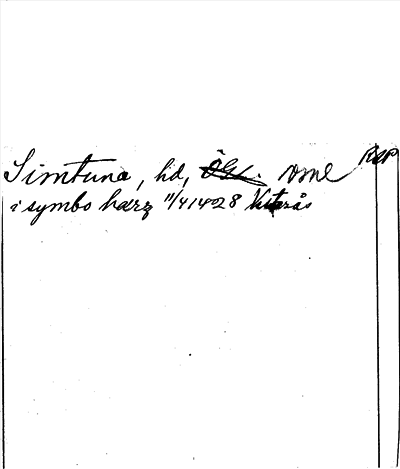 RAP
Simtuna, hd, ÖGL. Vml
i symbo hærz 11/4 1428 Västerås